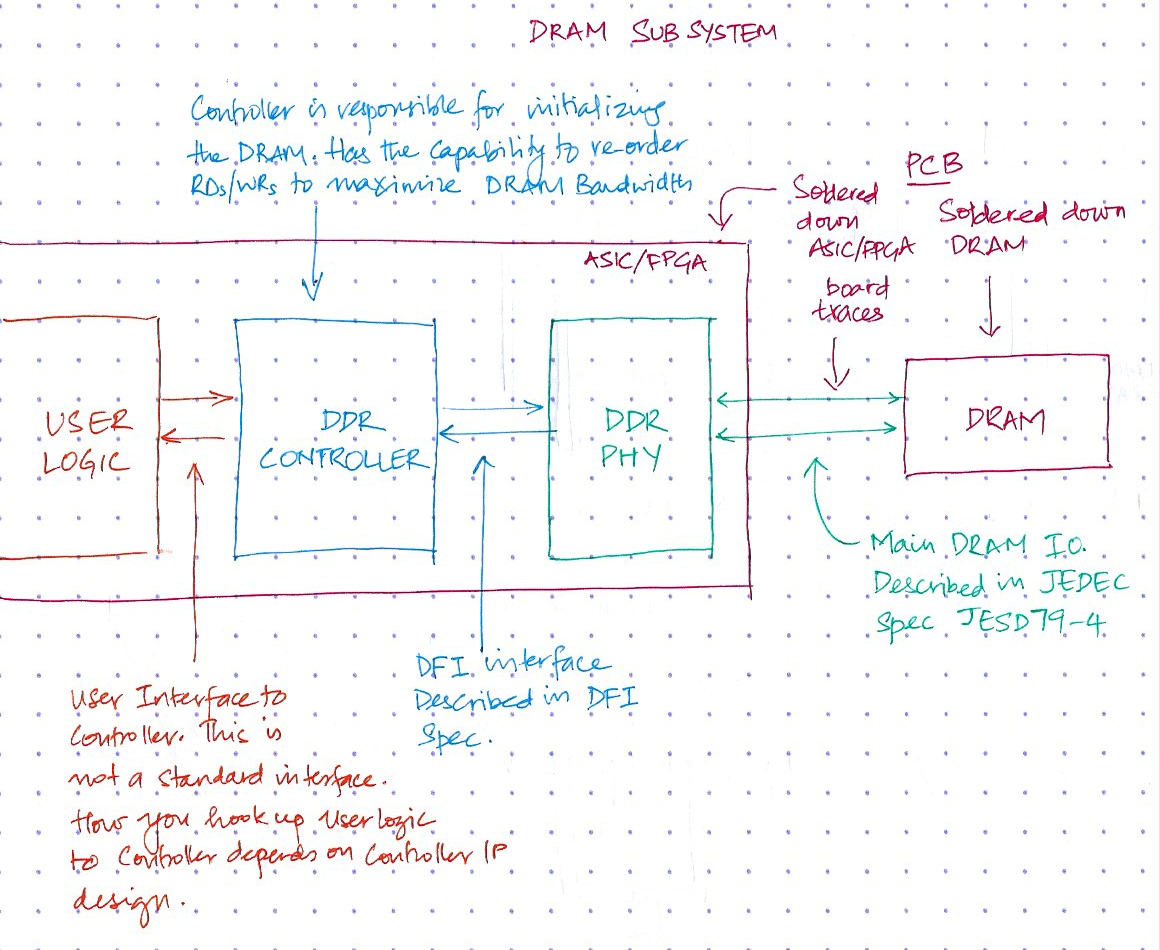 DRAM SUBSYSTEM
Controller is responsible for initializing
the DRAM. Has the capability to re-order
RDs/WRs to maximize DRAM Bandwidth
PCB
Soldered
down
ASIC/FPGA
Soldered down
DRAM
ASIC/FPGA
board
traces
USER
LOGIC
DDR
CONTROLLER
DDR
PHY
DRAM
Main DRAM IO.
Described in JEDEC
Spec JESD79-4
DFI interface
Described in DFI
Spec.
User Interface to
Controller. This is
not a standard interface.
How you hook up User logic
to Controller depends on Controller IP
design.